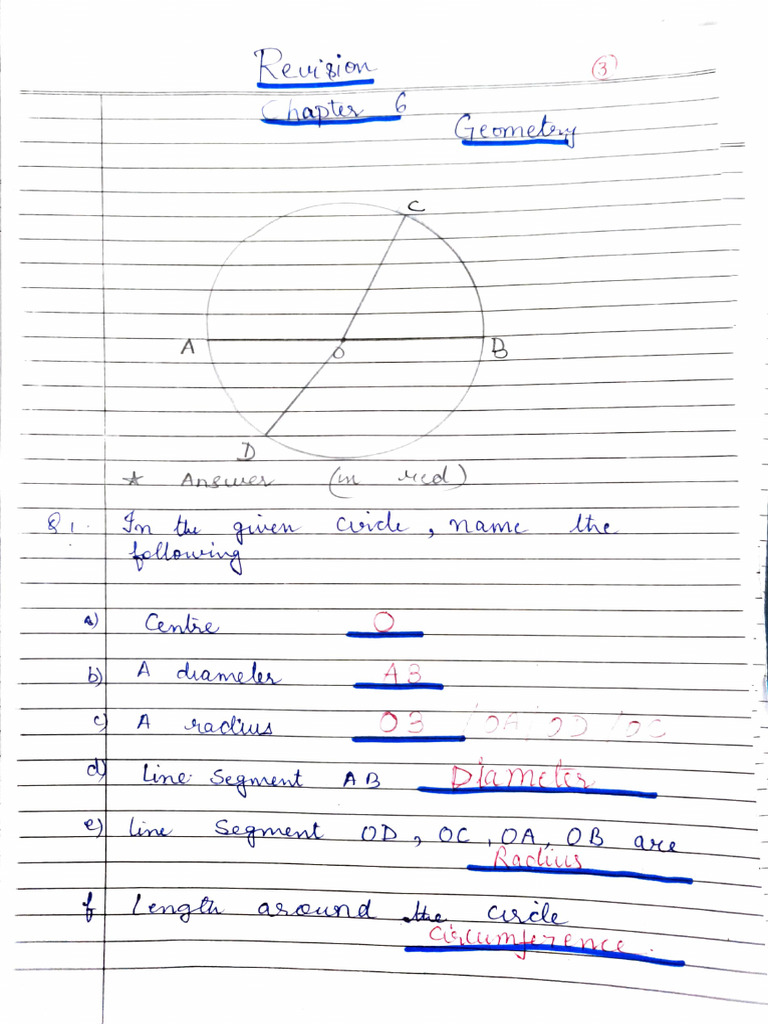 Revision
3
Chapter 6
Geometery
C
A
O
B
D
* Answer (in red)
Q1. In the given circle, name the
following
a) Centre O
b) A diameter AB
c) A radius OB /OA/OD/OC
d) Line Segment AB Diameter
e) line Segment OD, OC, OA, OB are
Radius
f Length around the circle
Circumference.